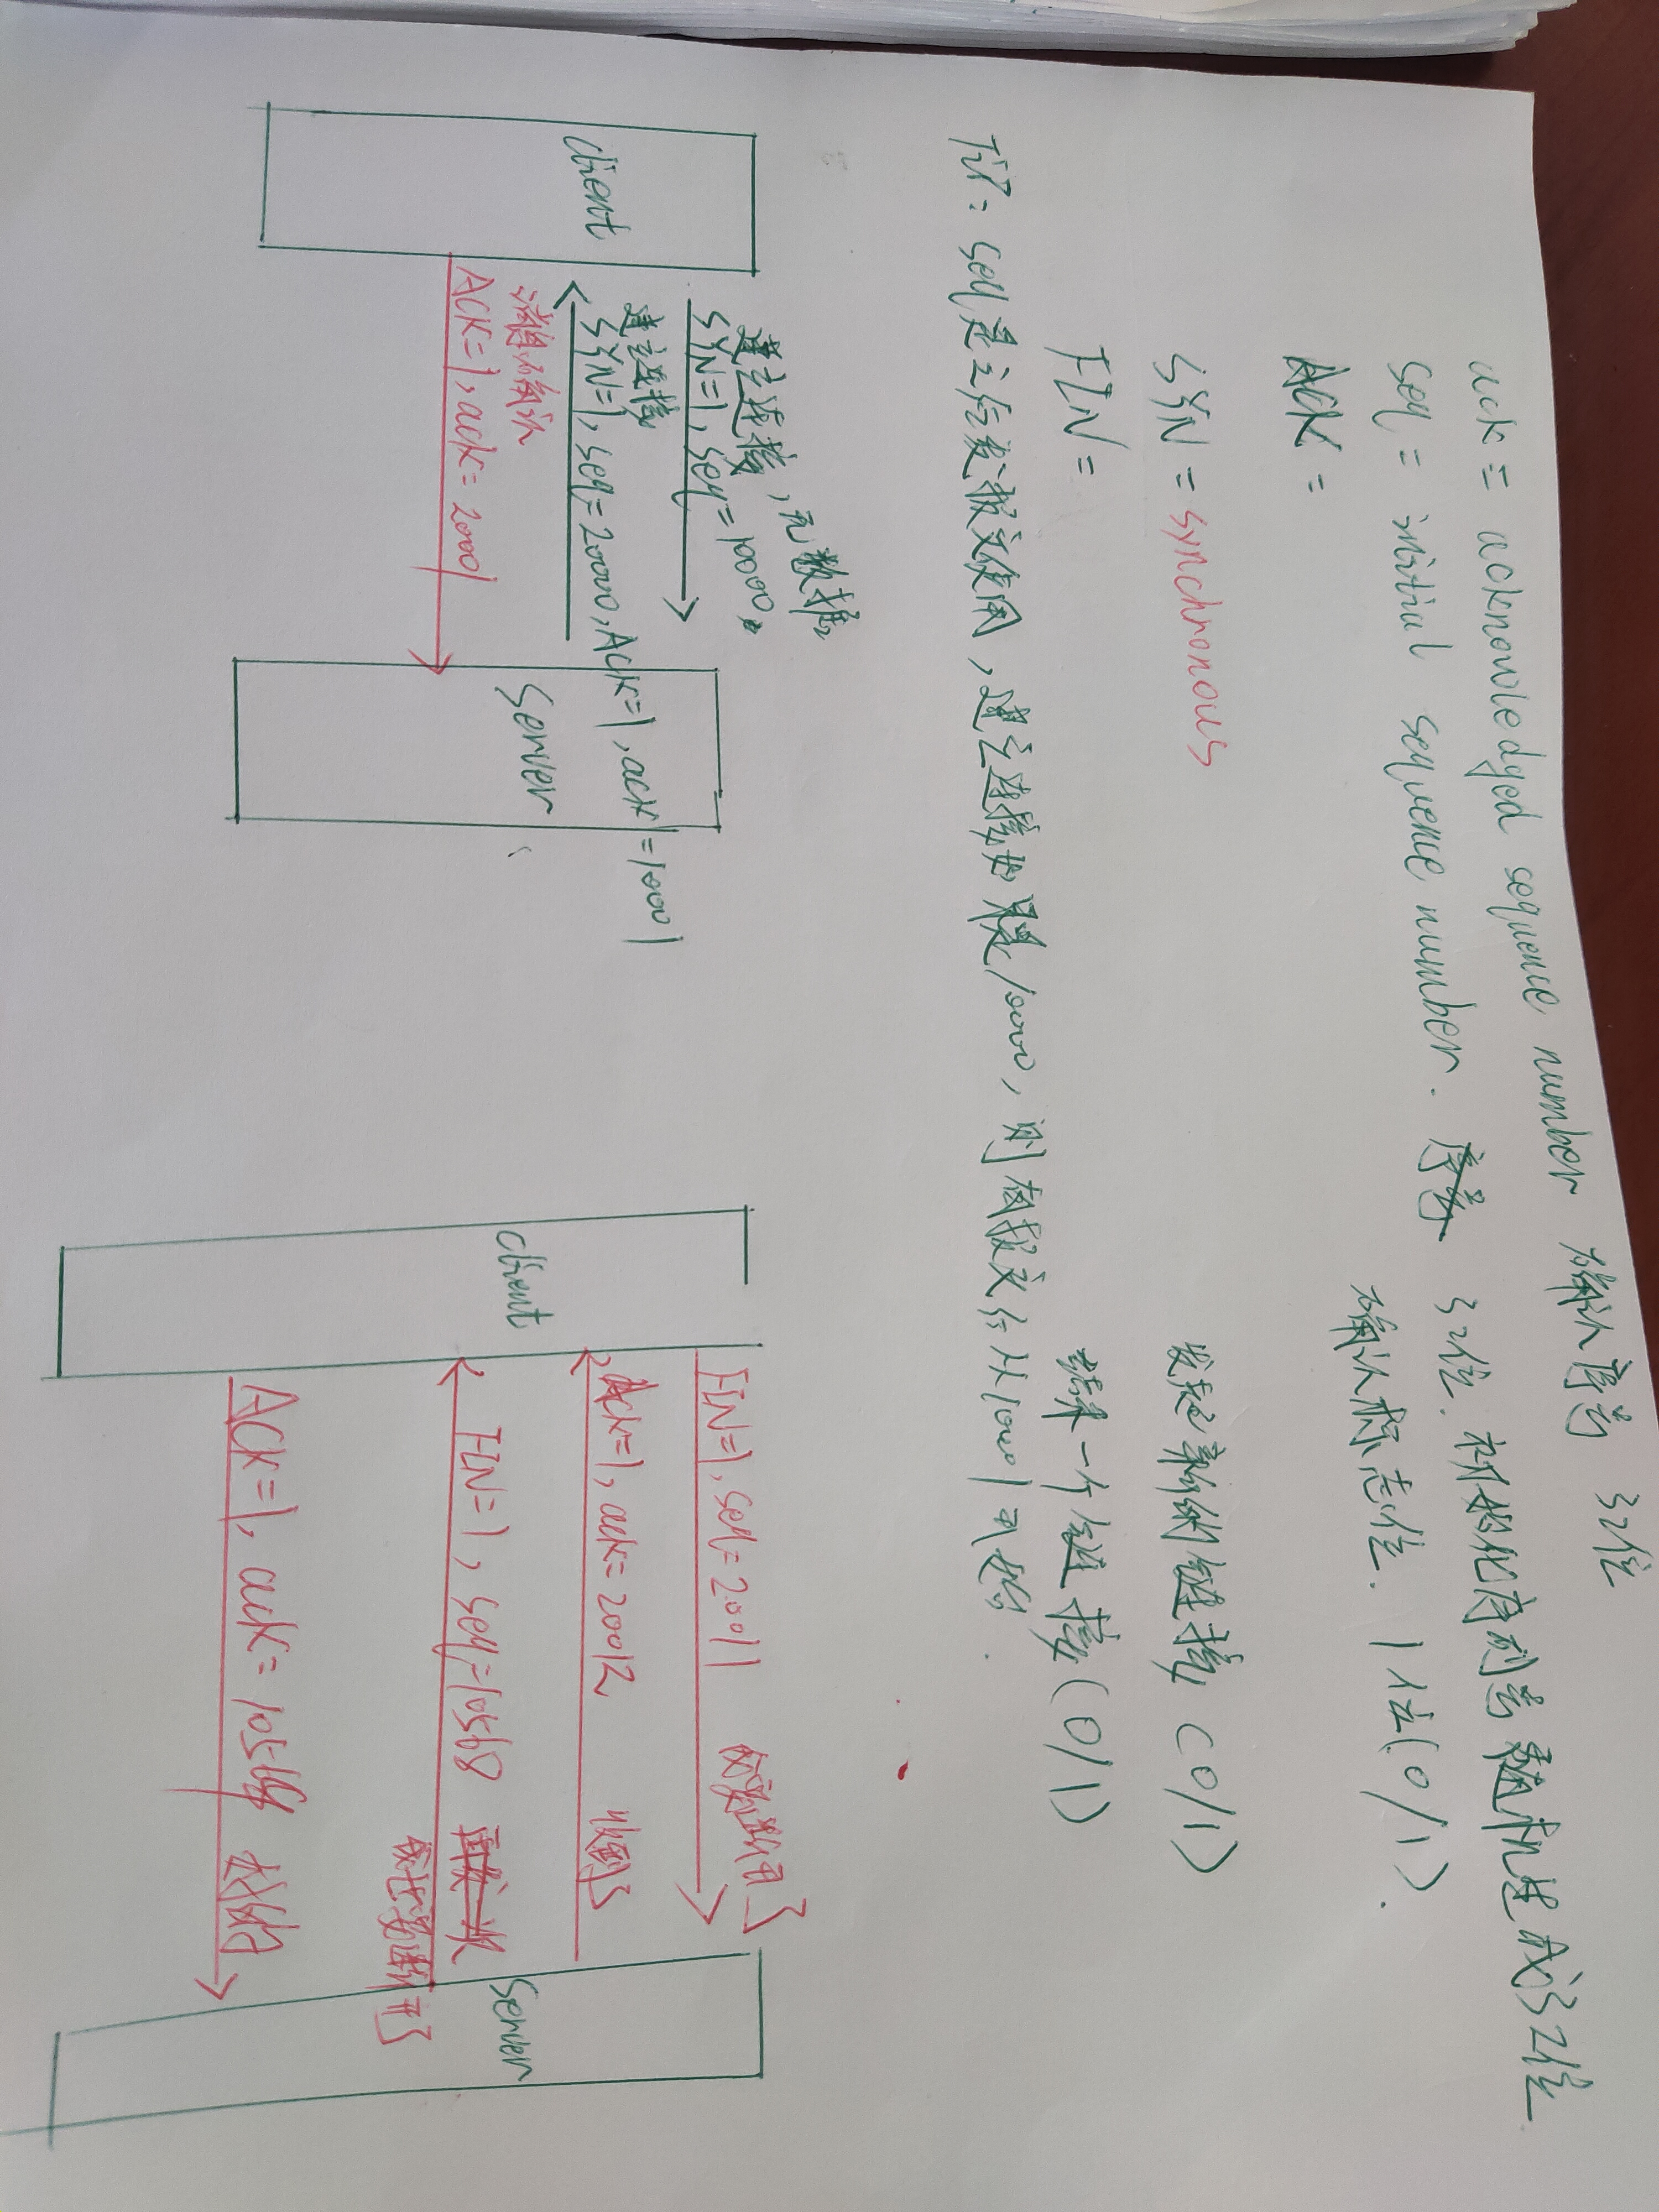 ack = acknowledged sequence number 确认序号 32位
seq = initial sequence number. 序号 32位. 初始化序列号 随机生成32位
ACK = 确认标志位. 1位(0/1).
SYN = synchronous 发起新的链接 (0/1)
FIN = 结束一个链接 (0/1)
TiP: seq是之后发报文使用,建立连接如果是10000,则报文会从10001开始.
建立连接,无数据
SYN=1, seq=10000,
建立连接
SYN=1, seq=20000, ACK=1, ack=10001
ACK=1, ack=20001
client
server
FIN=1, seq=20011 我要断开了
ACK=1, ack=20012 收到了
FIN=1, seq=10568 再发一次
我也要断开了
ACK=1, ack=10569 好的
client
server